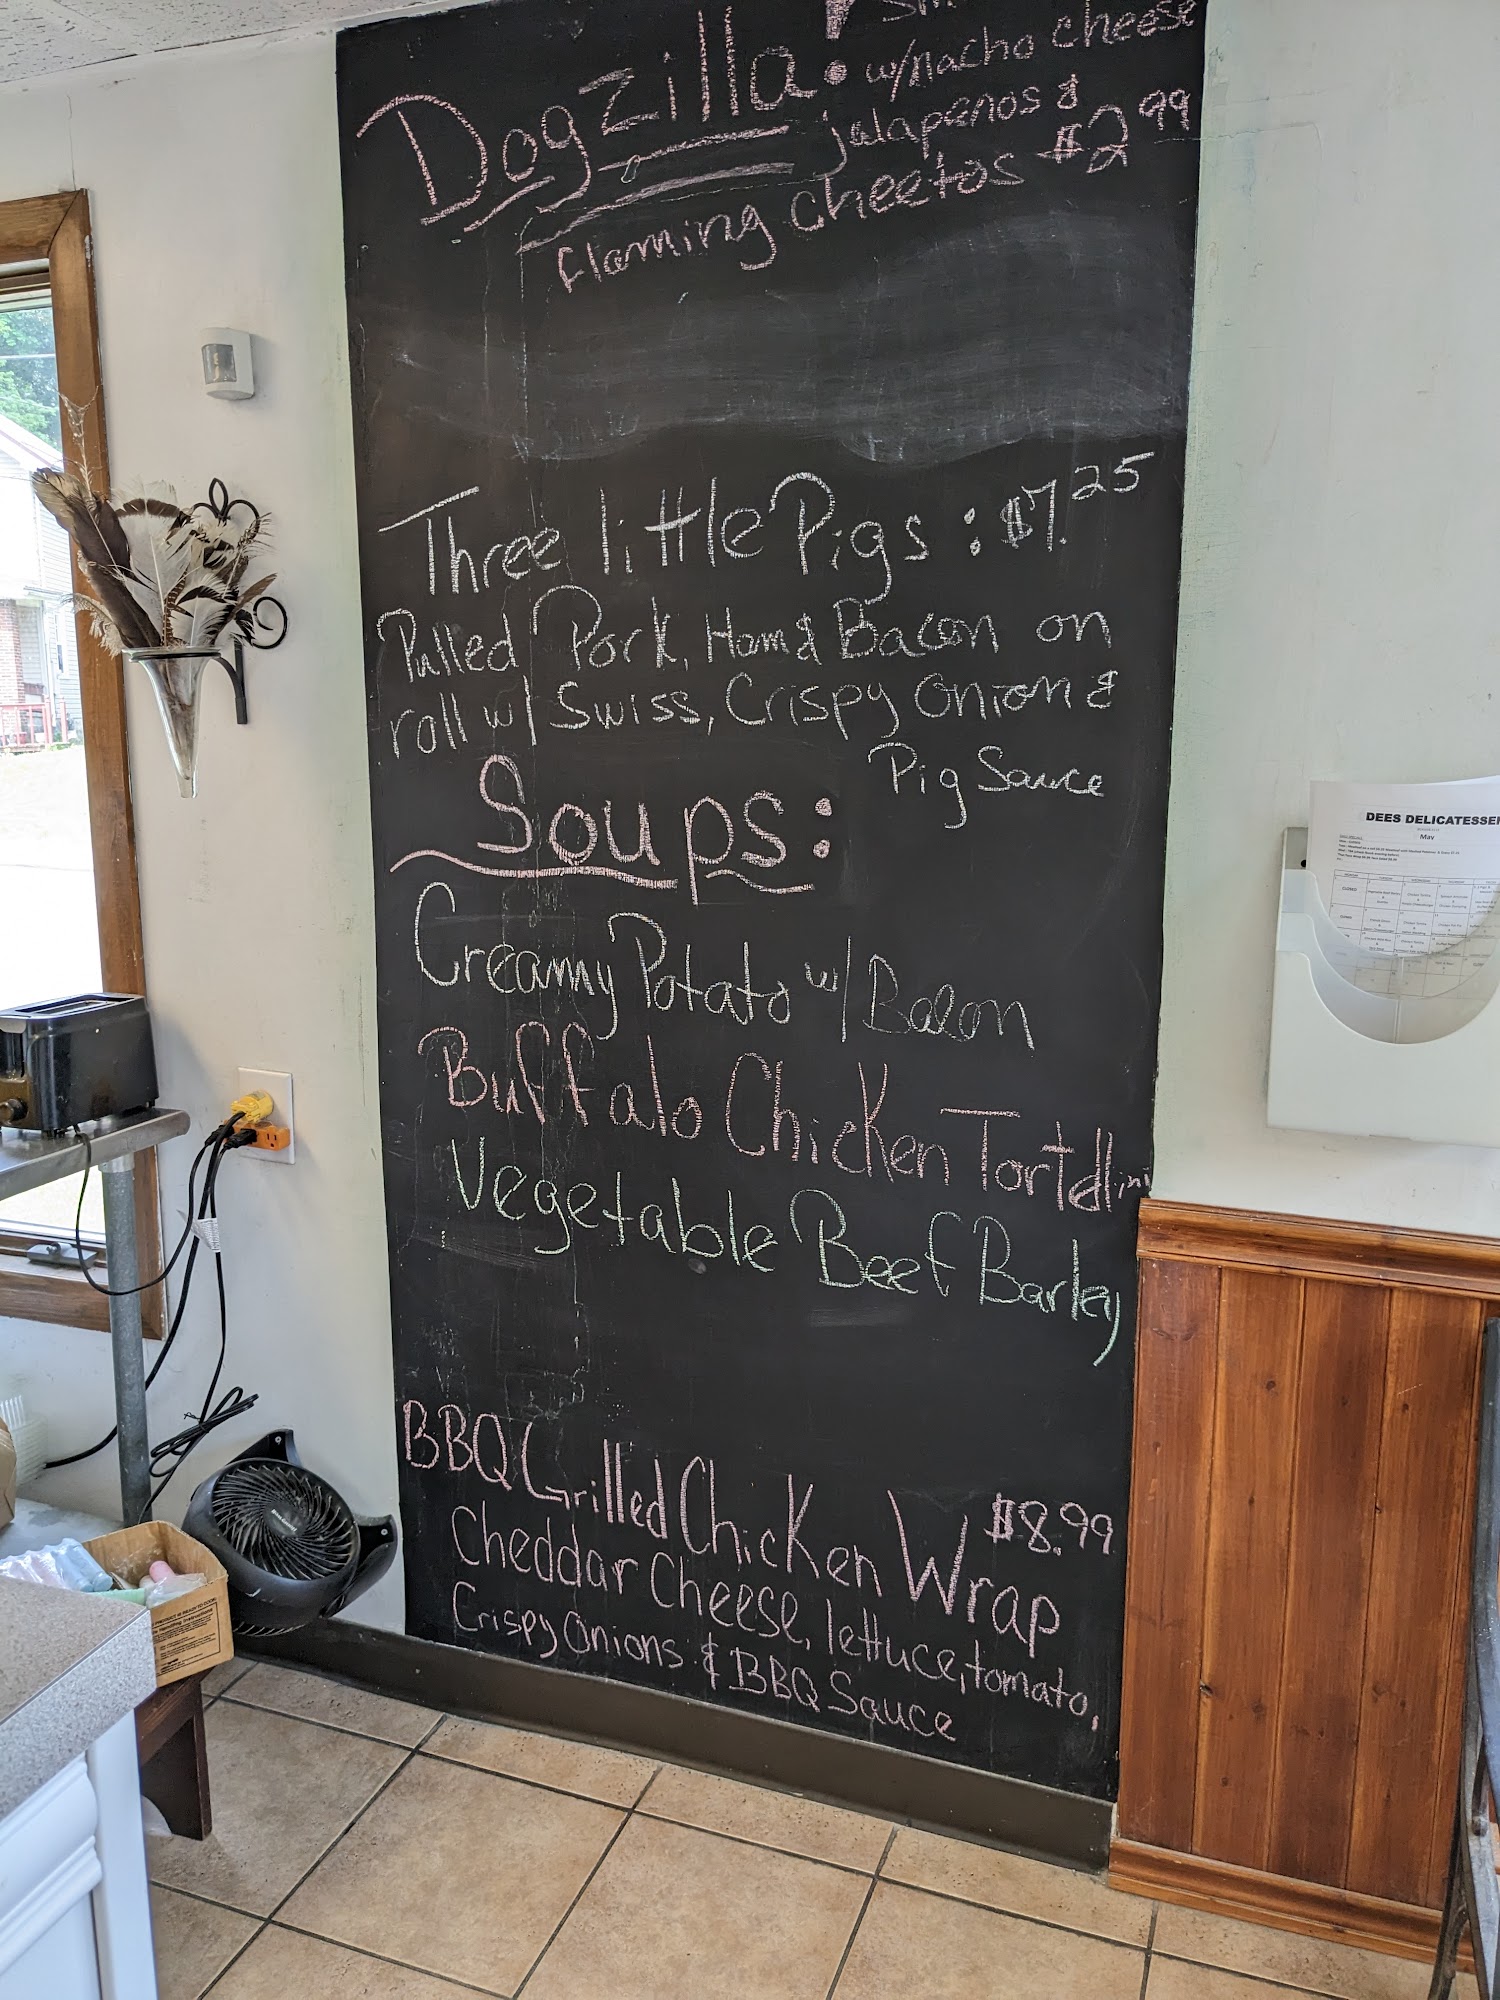 Dogzilla:
w/nacho cheese
jalapenos &
flaming cheetos $2.99
Three little Pigs: $7.25
Pulled Pork, Ham & Bacon on
roll w/ Swiss, Crispy Onion &
Pig Sauce
Soups:
Creamy Potato w/ Bacon
Buffalo Chicken Tortellini
Vegetable Beef Barley
BBQ Grilled Chicken Wrap $8.99
Cheddar Cheese, lettuce, tomato,
Crispy Onions & BBQ Sauce
DEES DELICATESSEN
May